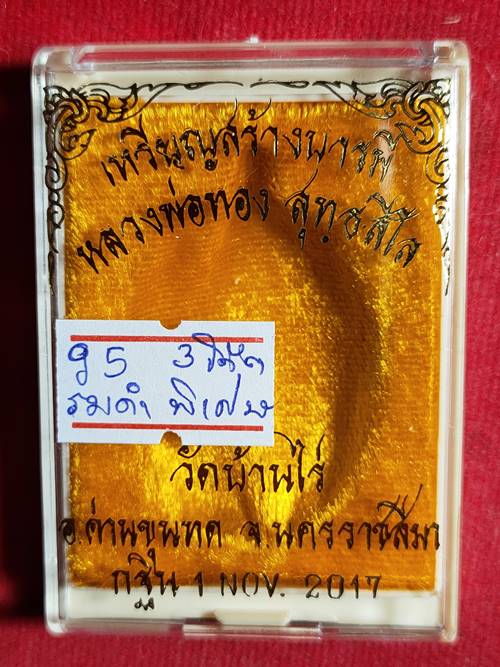 เหรียญสร้างบารมี
หลวงพ่อทอง สุทฺธสีโล
95 3โค๊ต
รมดำ พิเศษ
วัดบ้านไร่
อ.ด่านขุนทด จ.นครราชสีมา
กฐิน 1 NOV. 2017